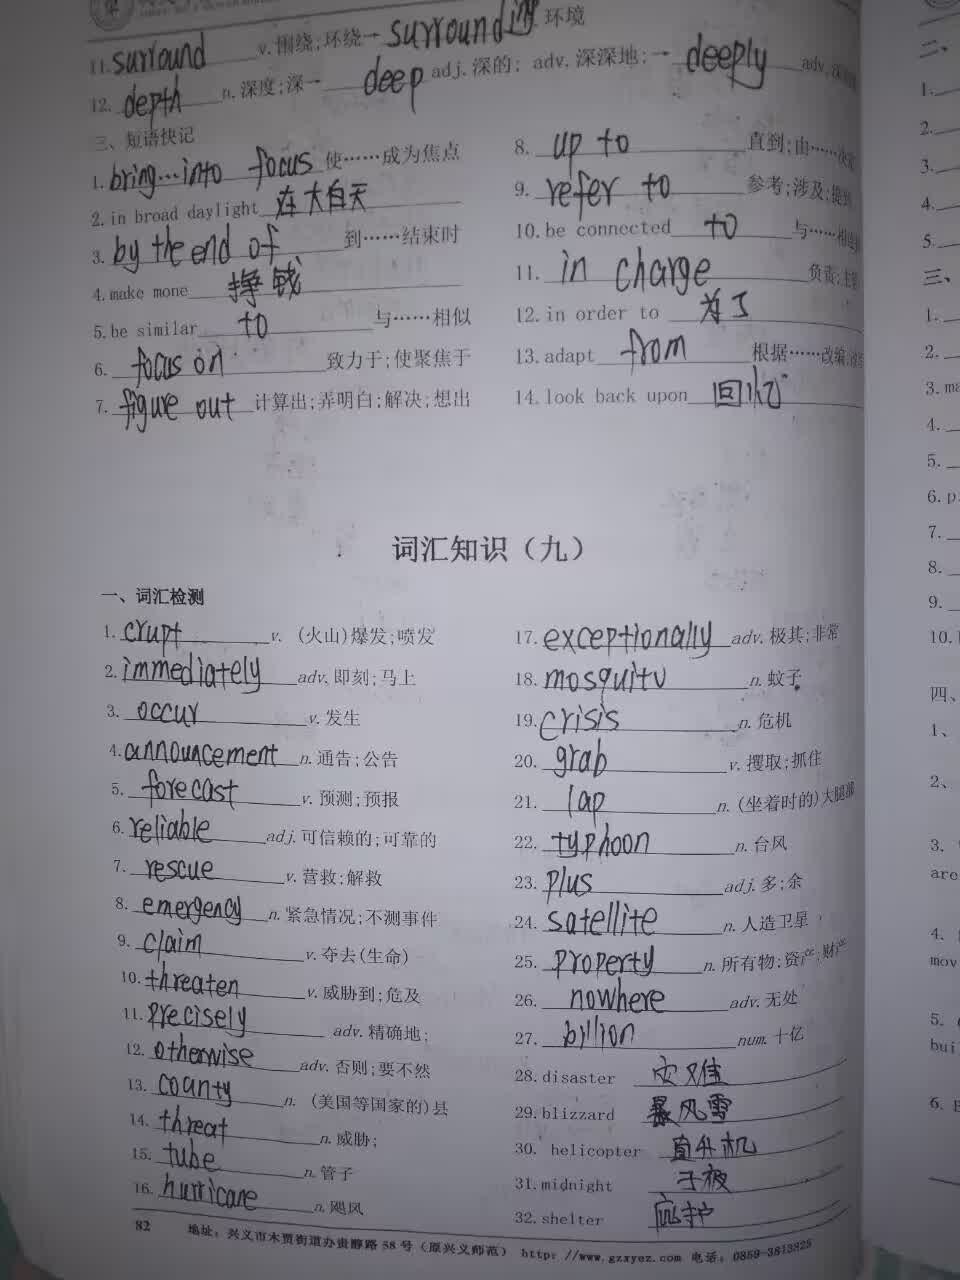 11. surround v. 围绕;环绕→ surrounding 环境
12. depth n. 深度;深→ deep adj. 深的; adv. 深深地;→ deeply adv.
三、短语快记
1. bring…into focus 使……成为焦点
2. in broad daylight 在大白天
3. by the end of 到……结束时
4. make mone 挣钱
5. be similar to 与……相似
6. focus on 致力于;使聚焦于
7. figure out 计算出;弄明白;解决;想出
8. up to 直到;由……
9. refer to 参考;涉及;提到
10. be connected to 与……
11. in charge 负责;主管
12. in order to 为了
13. adapt from 根据……改编
14. look back upon 回忆
词汇知识（九）
一、词汇检测
1. erupt v. (火山)爆发;喷发
2. immediately adv. 即刻;马上
3. occur v. 发生
4. announcement n. 通告;公告
5. forecast v. 预测;预报
6. reliable adj. 可信赖的;可靠的
7. rescue v. 营救;解救
8. emergency n. 紧急情况;不测事件
9. claim v. 夺去(生命)
10. threaten v. 威胁到;危及
11. precisely adv. 精确地;
12. otherwise adv. 否则;要不然
13. county n. (美国等国家的)县
14. threat n. 威胁;
15. tube n. 管子
16. hurricane n. 飓风
17. exceptionally adv. 极其;非常
18. mosquito n. 蚊子
19. crisis n. 危机
20. grab v. 攫取;抓住
21. lap n. (坐着时的)大腿部
22. typhoon n. 台风
23. plus adj. 多;余
24. satellite n. 人造卫星
25. property n. 所有物;资产;财产
26. nowhere adv. 无处
27. billion num. 十亿
28. disaster 灾难
29. blizzard 暴风雪
30. helicopter 直升机
31. midnight 子夜
32. shelter 庇护
82 地址: 兴义市木贾街道办贵醇路58号（原兴义师范） http: //www.gzxyez.com 电话: 0859-3813825
二、
1.
2.
3.
4.
5.
三、
1.
2.
3. ma
4.
5.
6. p
7.
8.
9.
10.
四、
1、
2、
3.
are
4.
mov
5.
bui
6. E